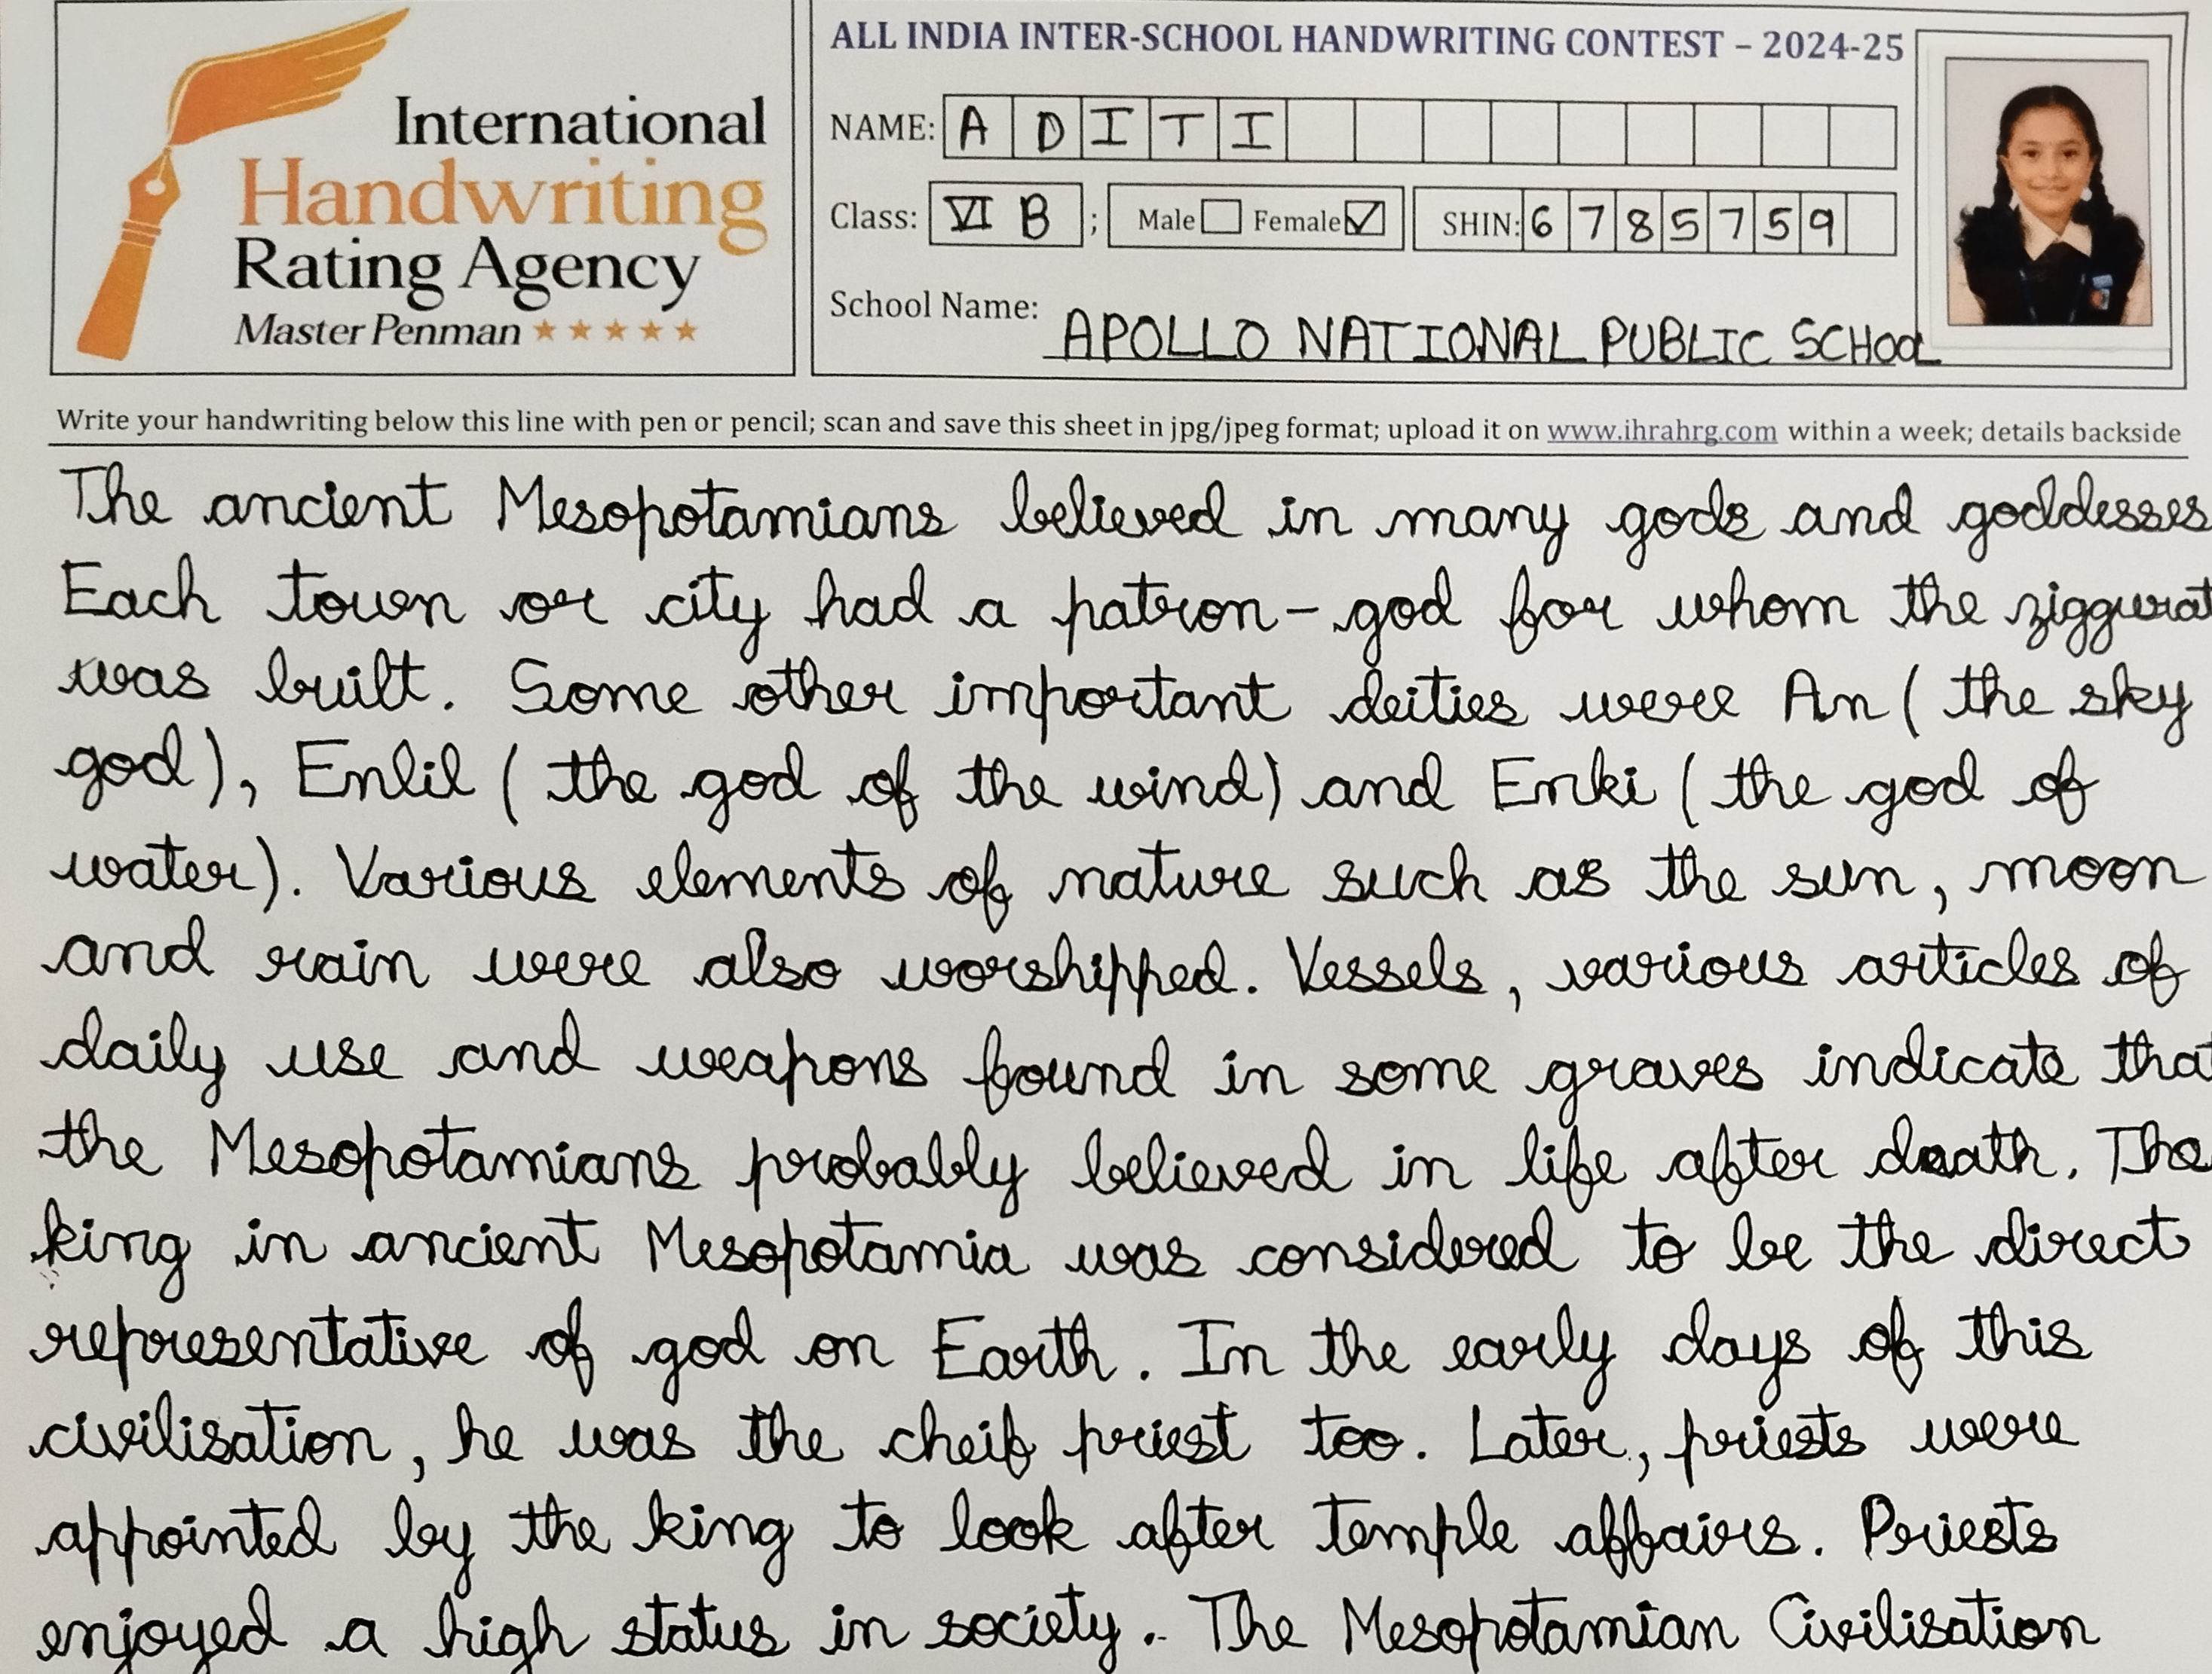 International
Handwriting
Rating Agency
Master Penman
ALL INDIA INTER-SCHOOL HANDWRITING CONTEST – 2024-25
NAME: ADITI
Class: VI B ; Male Female SHIN: 6785759
School Name: APOLLO NATIONAL PUBLIC SCHOOL
Write your handwriting below this line with pen or pencil; scan and save this sheet in jpg/jpeg format; upload it on www.ihrahrg.com within a week; details backside
The ancient Mesopotamians believed in many gods and goddesses
Each town or city had a patron-god for whom the ziggurat
was built. Some other important deities were An ( the sky
god), Enlil ( the god of the wind) and Enki ( the god of
water). Various elements of nature such as the sun, moon
and rain were also worshipped. Vessels, various articles of
daily use and weapons found in some graves indicate that
the Mesopotamians probably believed in life after death. The
king in ancient Mesopotamia was considered to be the direct
representative of god on Earth. In the early days of this
civilisation, he was the cheif priest too. Later, priests were
appointed by the king to look after temple affairs. Priests
enjoyed a high status in society. The Mesopotamian Civilisation